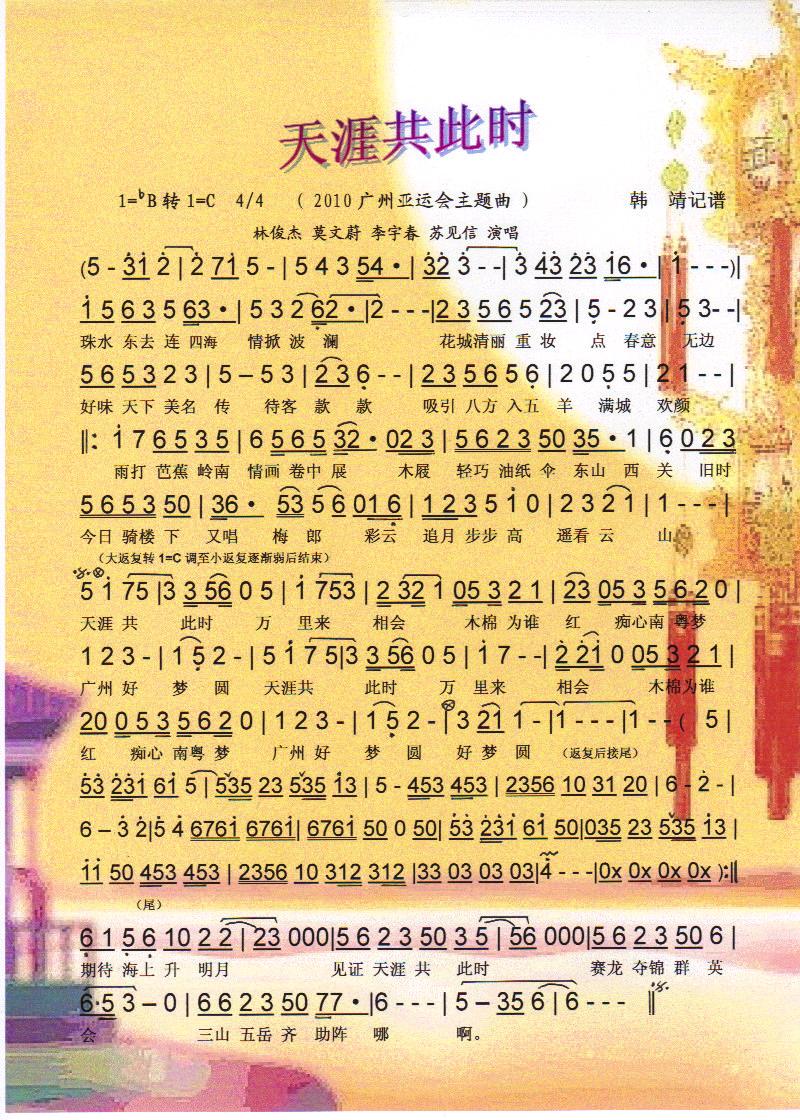 天涯共此时
1=♭B 转 1=C 4/4 ( 2010 广州亚运会主题曲 ) 韩 靖记谱
林俊杰 莫文蔚 李宇春 苏见信 演唱
(5 - 31 2 | 2 71 5 - | 5 4 3 54 · | 32 3 - - | 3 43 23 16 · | 1 - - - )|
1 5 6 3 5 63 · | 5 3 2 62 · |2 - - -|2 3 5 6 5 23 | 5 - 2 3 | 5 3- -|
珠水 东去 连 四海 情掀 波 澜 花城清丽 重 妆 点 春意 无边
5 6 5 3 2 3 | 5 – 5 3 | 2 3 6 - - | 2 3 5 6 5 6 | 2 0 5 5 | 2 1 - - |
好味 天下 美名 传 待客 款 款 吸引 八方 入五 羊 满城 欢颜
‖: 1 7 6 5 3 5 | 6 5 6 5 32 · 02 3 | 5 6 2 3 50 35 · 1 | 6 0 2 3
雨打 芭蕉 岭南 情画 卷中 展 木屐 轻巧 油纸 伞 东山 西 关 旧时
5 6 5 3 50 | 36 · 53 5 6 01 6 | 1 2 3 5 1 0 | 2 3 2 1 | 1 - - - |
今日 骑楼 下 又唱 梅 郎 彩云 追月 步步 高 遥看 云 山
(大返复转 1=C 调至小返复逐渐弱后结束)
5 1 75 |3 3 56 0 5 | 1 753 | 2 32 1 05 3 2 1 | 23 05 3 5 6 2 0 |
天涯 共 此时 万 里来 相会 木棉 为谁 红 痴心南 粤梦
1 2 3 - | 1 5 2 - | 5 1 7 5 |3 3 56 0 5 | 1 7 - - | 2 2 1 0 05 3 2 1 |
广州 好 梦 圆 天涯共 此时 万 里来 相会 木棉为谁
20 0 5 3 5 6 2 0 | 1 2 3 - | 1 5 2 - | 3 21 1 - |1 - - - |1 - - ( 5 |
红 痴心 南粤 梦 广州 好 梦 圆 好 梦 圆 (返复后接尾)
53 231 61 5 | 535 23 535 13 | 5 - 453 453 | 2356 10 31 20 | 6 - 2 - |
6 – 3 2|5 4 6761 6761| 6761 50 0 50| 53 231 61 50|035 23 535 13 |
11 50 453 453 | 2356 10 312 312 |33 03 03 03|4 - - -|0x 0x 0x 0x ):‖
(尾)
6 1 5 6 10 2 2 | 23 000|5 6 2 3 50 3 5 | 56 000|5 6 2 3 50 6 |
期待 海上 升 明月 见证 天涯 共 此时 赛龙 夺锦 群 英
6·5 3 – 0 | 6 6 2 3 50 77 · |6 - - - | 5 – 35 6 | 6 - - - ‖
会 三山 五岳 齐 助阵 哪 啊。